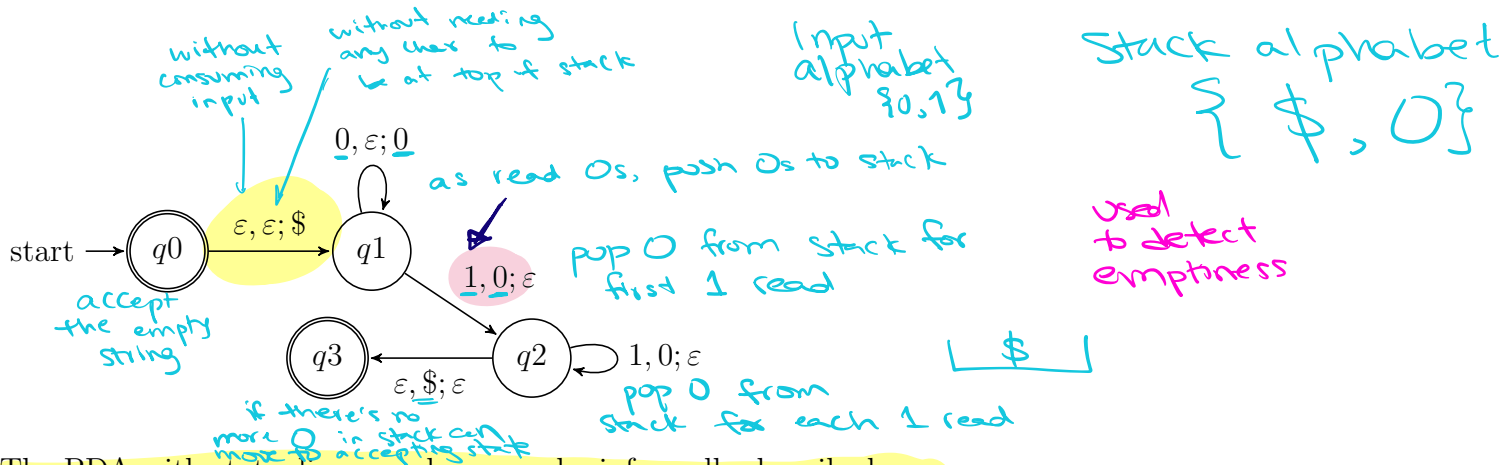 without
consuming
input
without needing
any char to
be at top of stack
Input
alphabet
{0,1}
Stack alphabet
{ $, 0}
0, ε; 0
as read 0s, push 0s to stack
used
to detect
emptiness
start
q0
ε, ε; $
q1
1, 0; ε
pop 0 from stack for
first 1 read
accept
the empty
string
q3
ε, $; ε
q2
1, 0; ε
$
pop 0 from
stack for each 1 read
if there's no
more 0 in stack can
move to accepting state